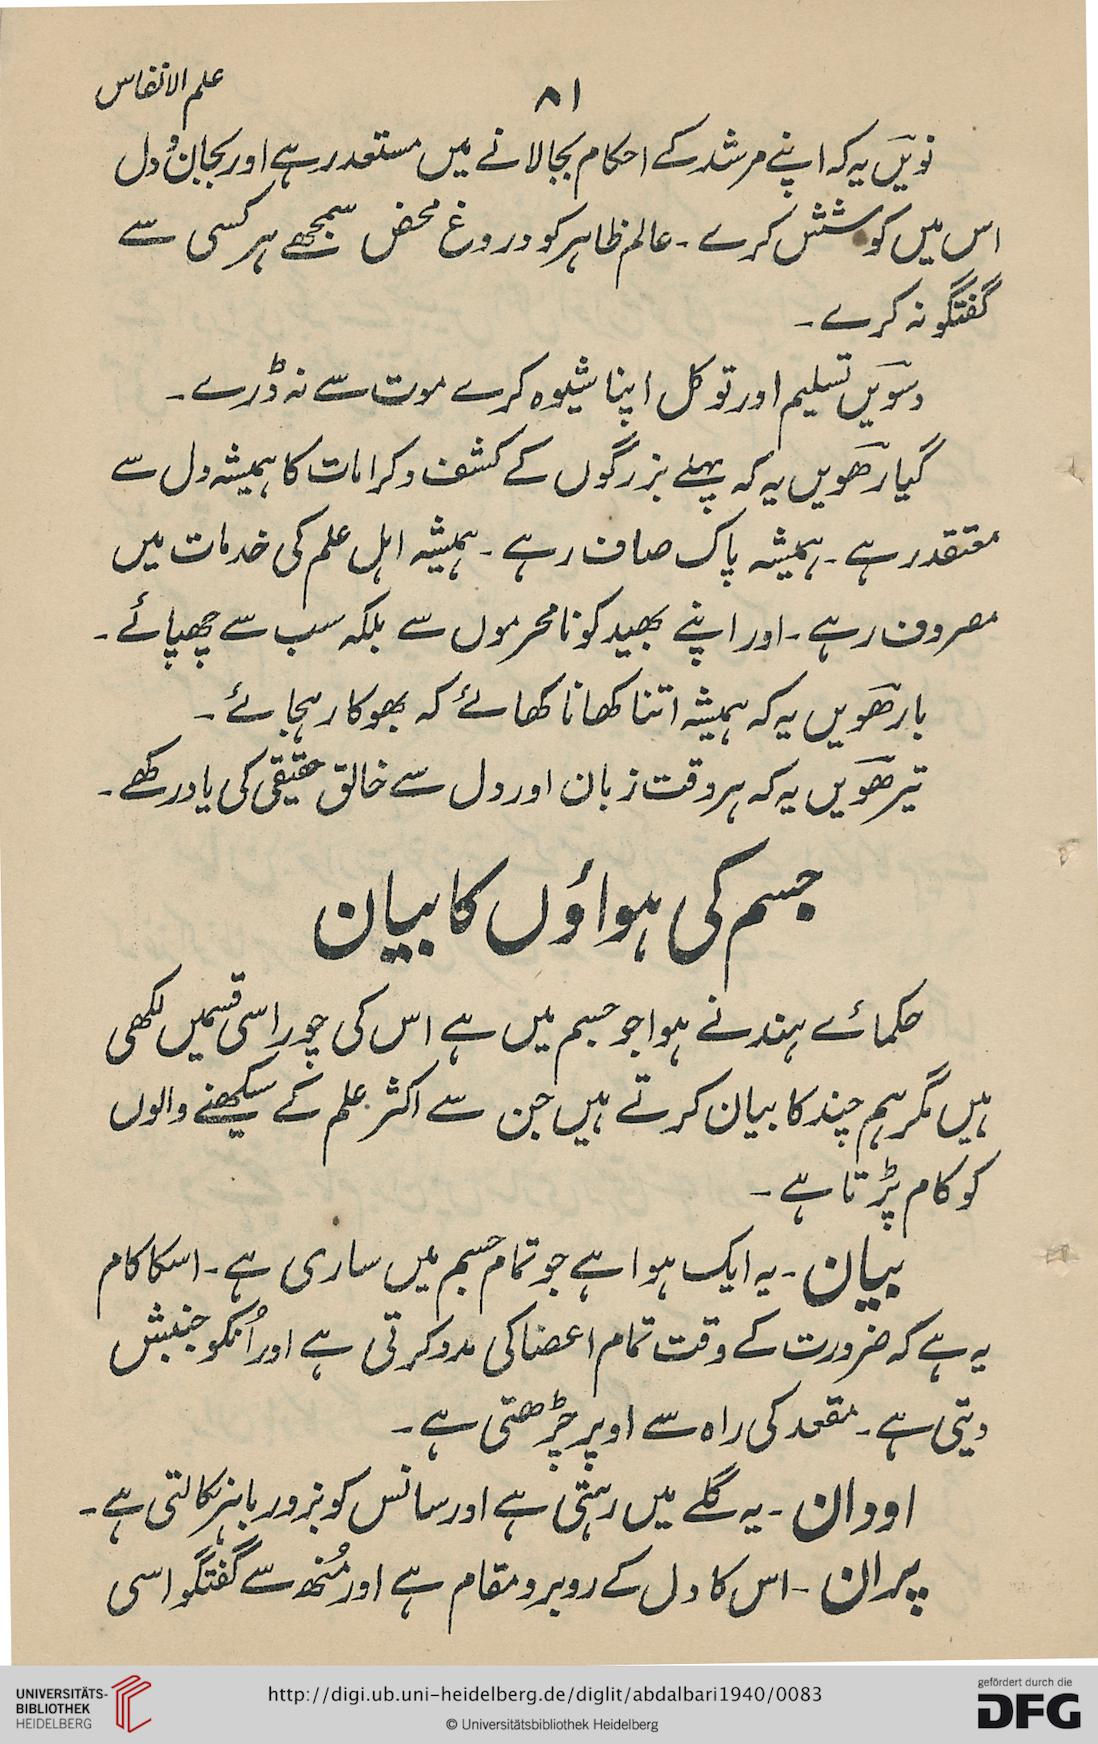 علم الانفاس
۸۱
نویں یہ کہ اپنے مرشد کے احکام بجالانے میں مستعد رہے اور بجان و دل
اس میں کوشش کرے ۔ عالم ظاہر کو دروغ محض سمجھے ہر کسی سے
گفتگو نہ کرے ۔
دسویں تسلیم اور توکل اپنا شیوہ کرے موت سے نہ ڈرے ۔
گیارھویں یہ کہ پہلے بزرگوں کے کشف و کرامات کا ہمیشہ دل سے
معتقد رہے ۔ ہمیشہ پاک صاف رہے ۔ ہمیشہ اہل علم کی خدمات میں
مصروف رہے ۔ اور اپنے بھید کو نامحرموں سے بلکہ سب سے چھپائے ۔
بارھویں یہ کہ ہمیشہ اتنا کھانا کھائے کہ بھوکا رہجائے ۔
تیرھویں یہ کہ ہر وقت زبان اور دل سے خالق حقیقی کی یاد رکھے ۔
جسم کی ہواؤں کا بیان
حکمائے ہند نے ہوا جو جسم میں ہے اس کی چوراسی قسمیں لکھی
ہیں مگر ہم چند کا بیان کرتے ہیں جن سے اکثر علم کے سیکھنے والوں
کو کام پڑتا ہے ۔
بیان ۔ یہ ایک ہوا ہے جو تمام جسم میں ساری ہے ۔ اسکا کام
یہ ہے کہ ضرورت کے وقت تمام اعضا کی مدد کرتی ہے اور اُنکو جنبش
دیتی ہے ۔ مقعد کی راہ سے اوپر چڑھتی ہے ۔
اودان ۔ یہ گلے میں رہتی ہے اور سانس کو بزور باہر نکالتی ہے ۔
پران ۔ اس کا دل کے روبرو مقام ہے اور مُنھ سے گفتگو اسی
UNIVERSITÄTS-
BIBLIOTHEK
HEIDELBERG
http://digi.ub.uni-heidelberg.de/diglit/abdalbari1940/0083
© Universitätsbibliothek Heidelberg
gefördert durch die
DFG